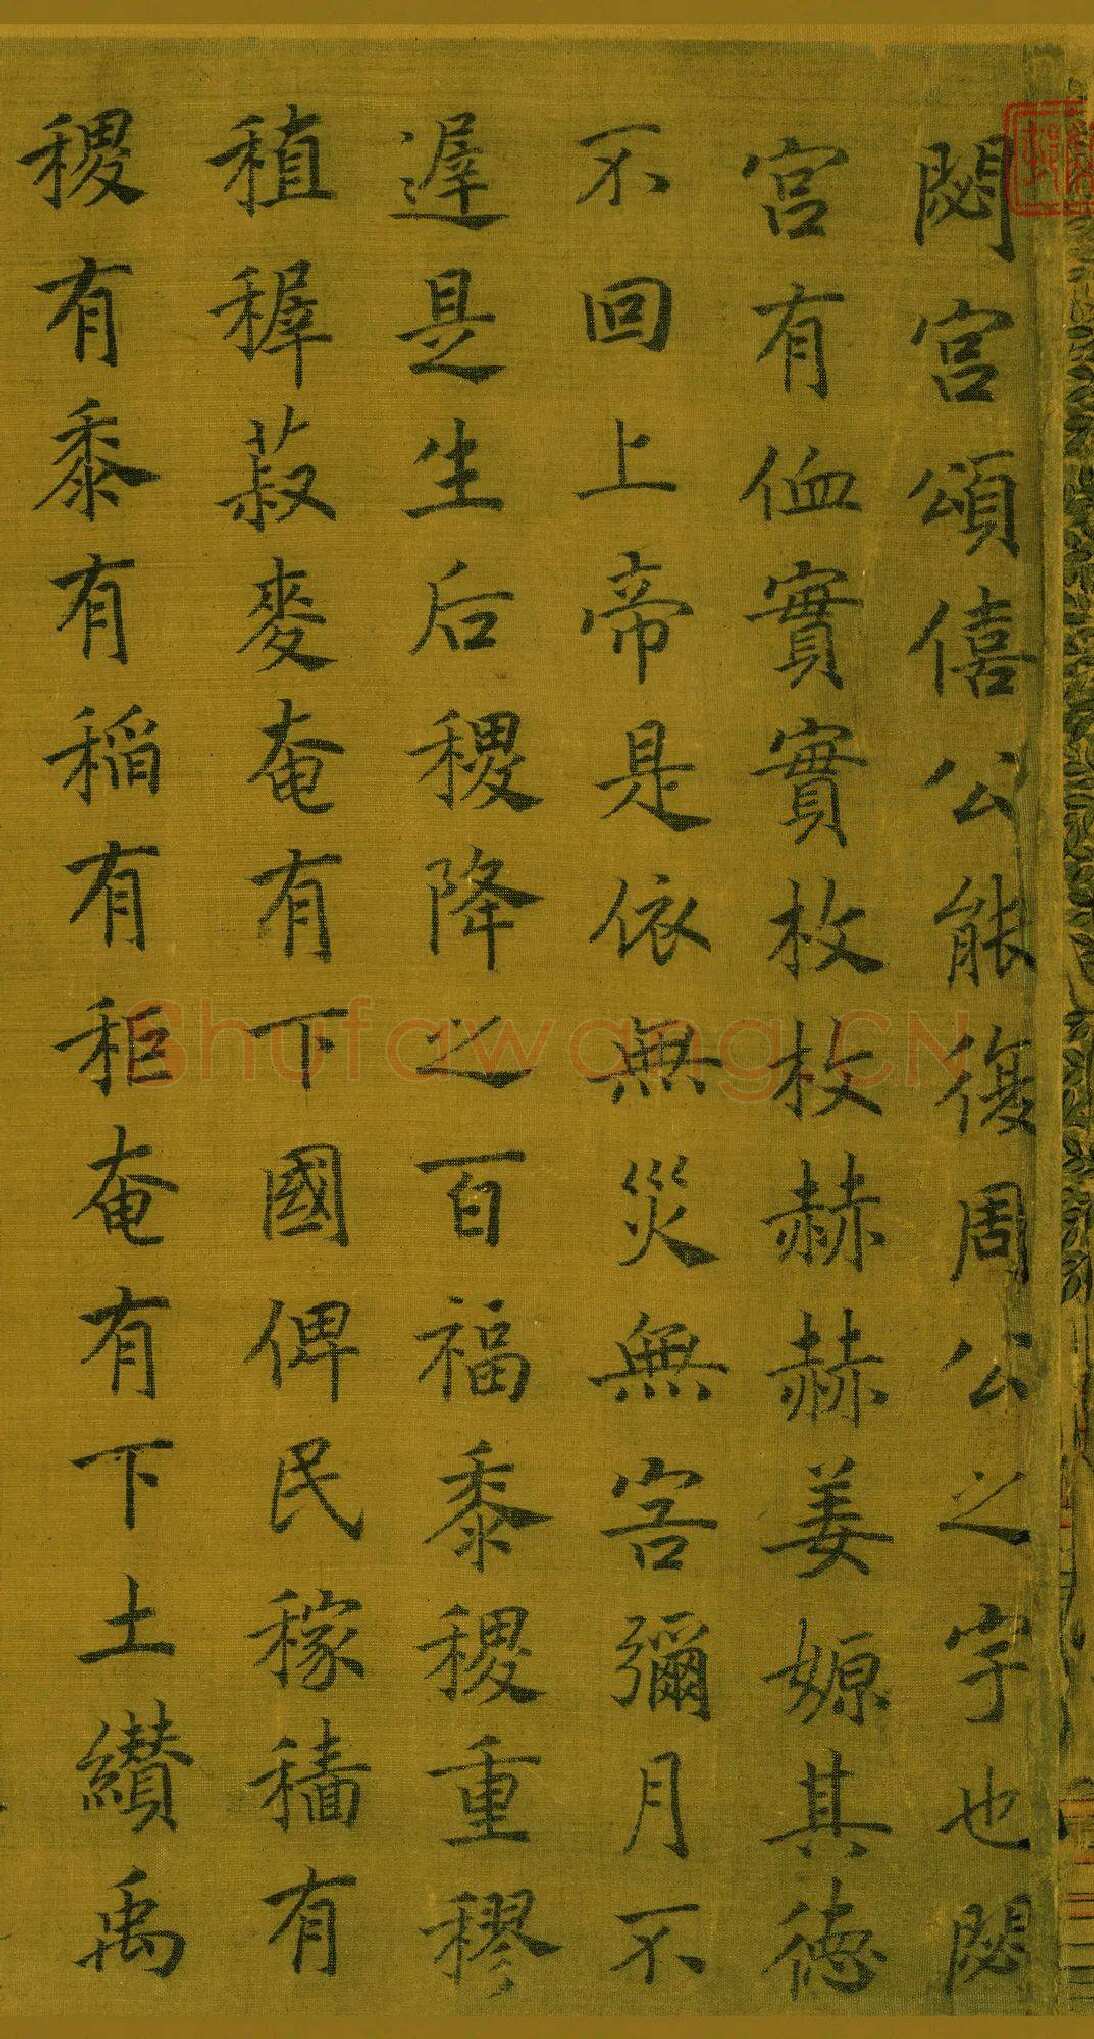 閟宮頌僖公能復周公之宇也閟
宮有侐實實枚枚赫赫姜嫄其德
不回上帝是依無災無害彌月不
遲是生后稷降之百福黍稷重穋
稙稺菽麥奄有下國俾民稼穡有
稷有黍有稻有秬奄有下土纘禹
Shufawang.CN